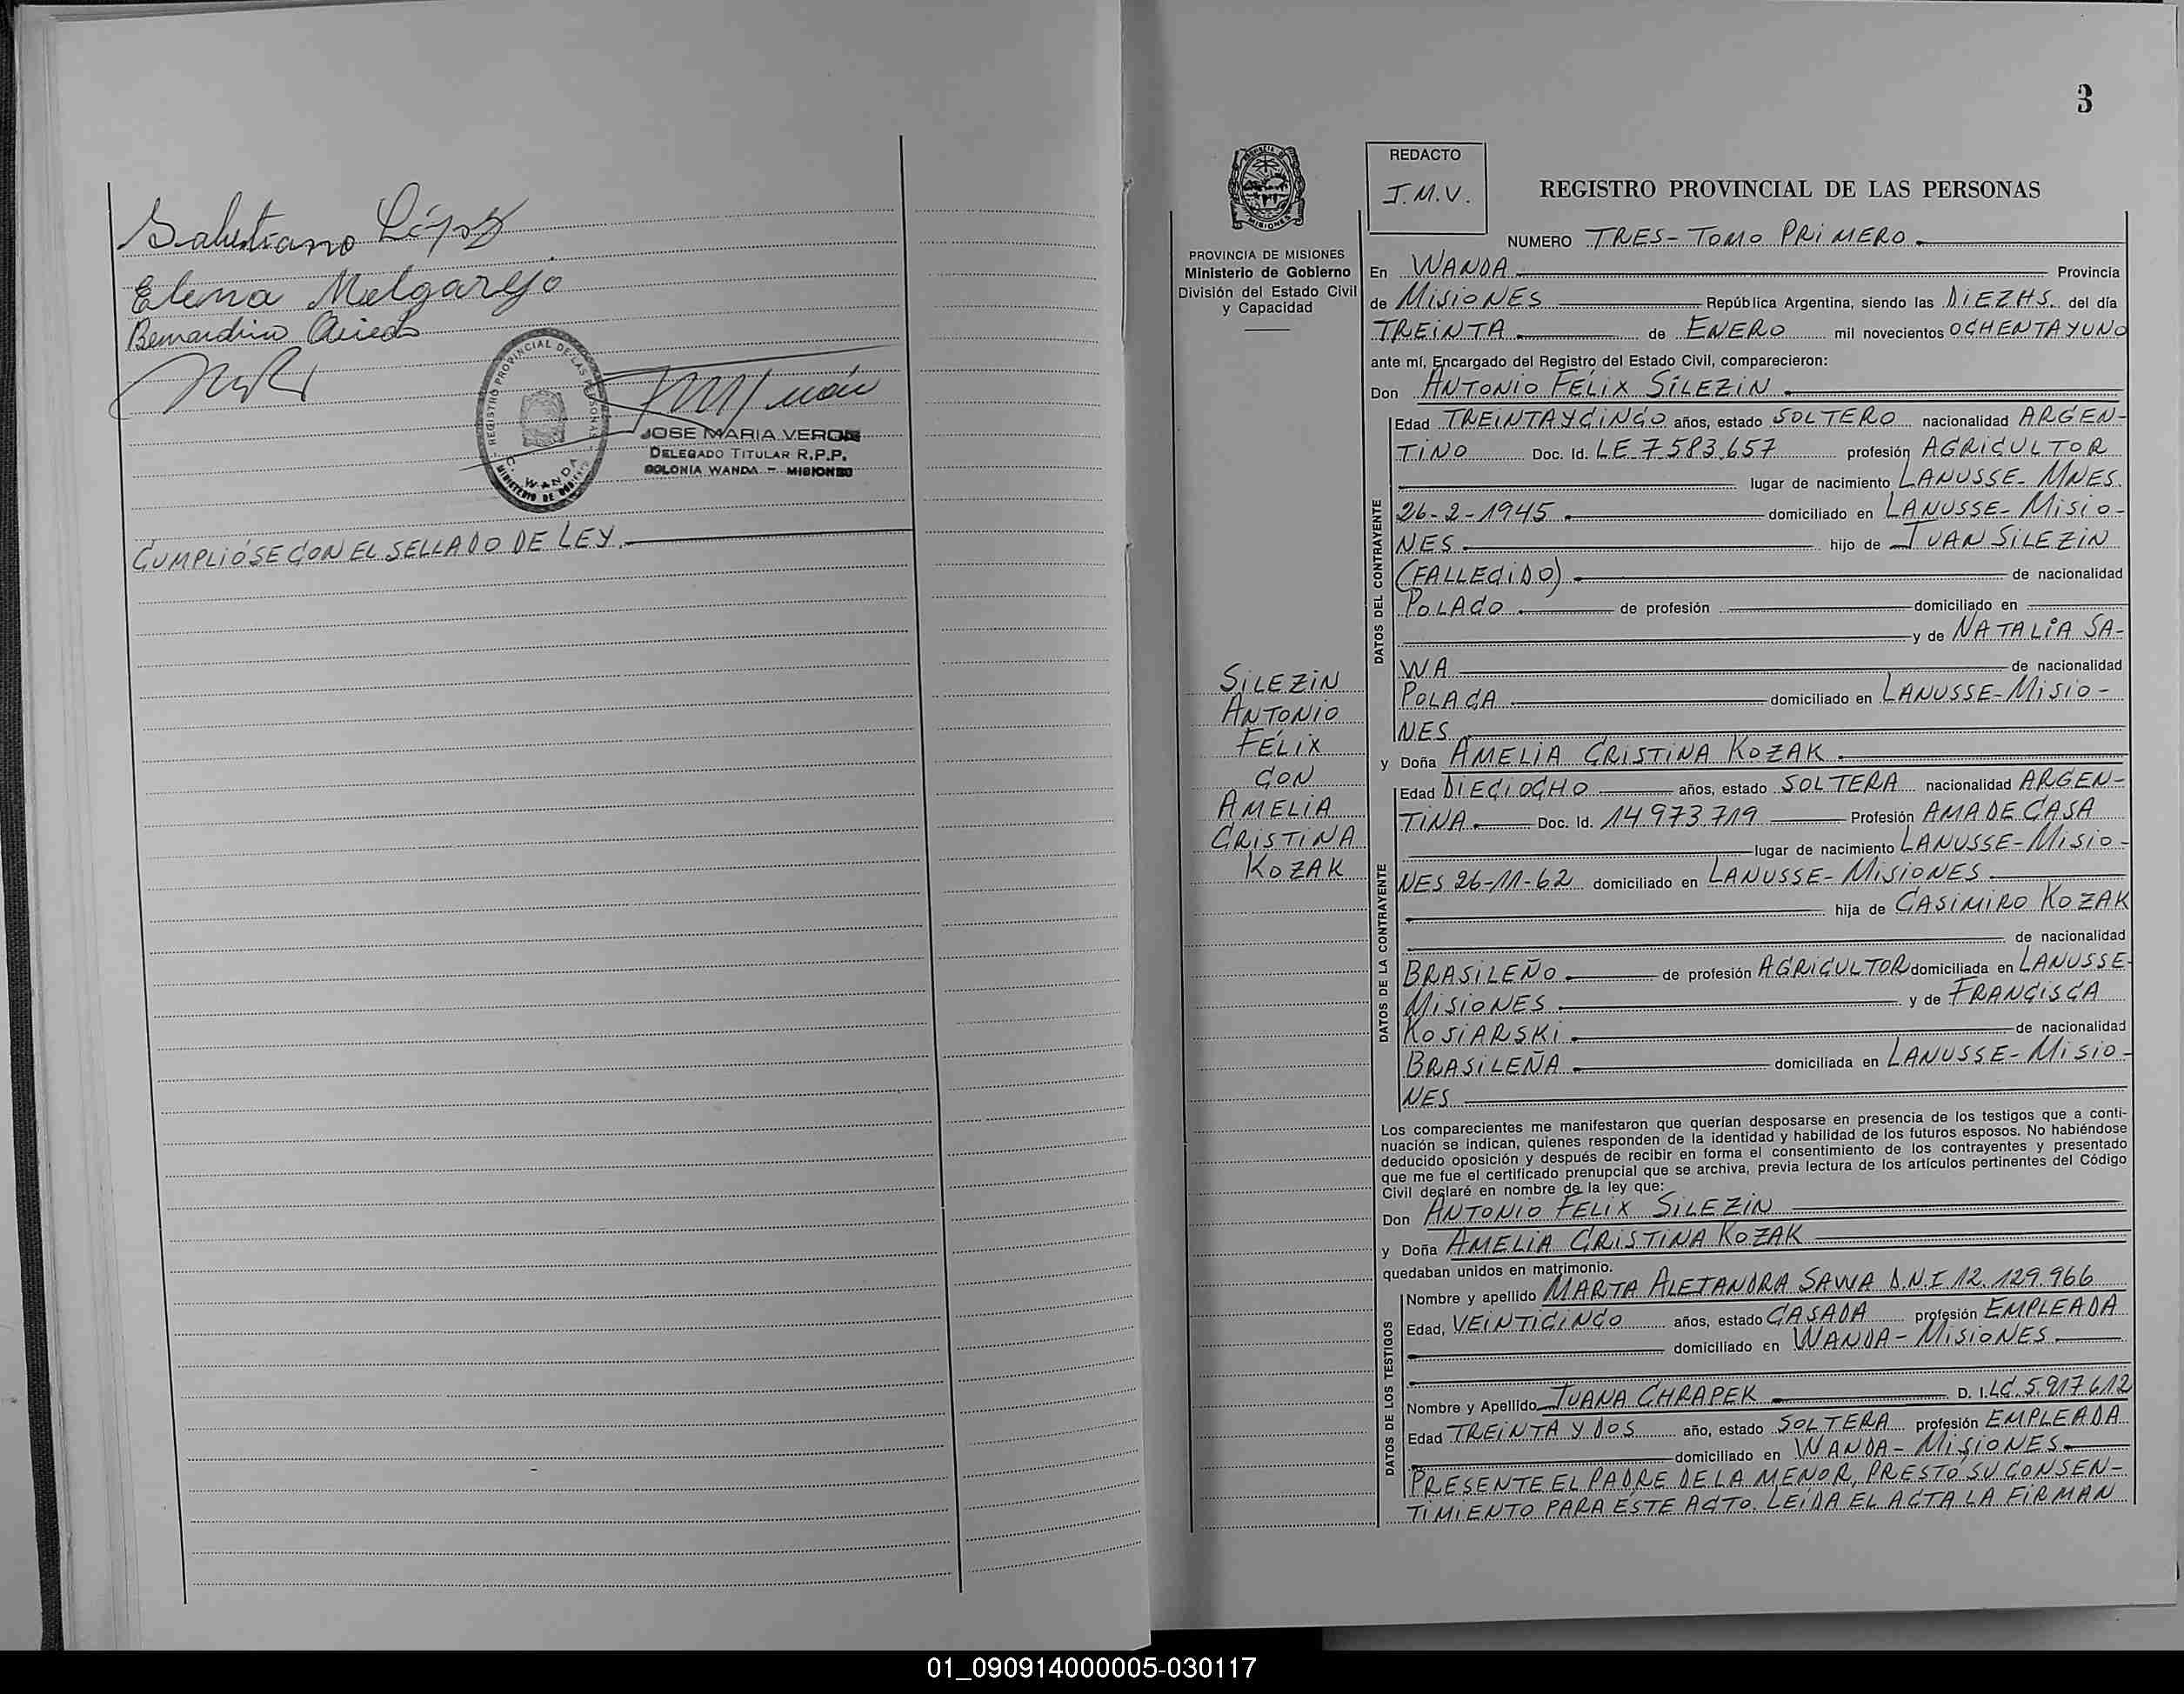 Salustiano López
Elena Melgarejo
Bernardino
REGISTRO PROVINCIAL DE LAS PERSONAS
C. WANDA
MINISTERIO DE GOBIERNO
JOSE MARIA VERON
DELEGADO TITULAR R.P.P.
COLONIA WANDA - MISIONES
CUMPLIÓSE CON EL SELLADO DE LEY.
3
PROVINCIA DE MISIONES
Ministerio de Gobierno
División del Estado Civil
y Capacidad
SILEZIN
ANTONIO
FÉLIX
CON
AMELIA
CRISTINA
KOZAK
REDACTO
J.M.V.
REGISTRO PROVINCIAL DE LAS PERSONAS
NUMERO TRES - TOMO PRIMERO.
En WANDA Provincia
de MISIONES República Argentina, siendo las DIEZ HS. del día
TREINTA de ENERO mil novecientos OCHENTA Y UNO
ante mí, Encargado del Registro del Estado Civil, comparecieron:
Don ANTONIO FÉLIX SILEZIN
DATOS DEL CONTRAYENTE
Edad TREINTA Y CINCO años, estado SOLTERO nacionalidad ARGEN-
TINO Doc. Id. LE 7.583.657 profesión AGRICULTOR
lugar de nacimiento LANUSSE - MNES.
26-2-1945 domiciliado en LANUSSE - MISIO-
NES hijo de JUAN SILEZIN
(FALLECIDO) de nacionalidad
POLACO de profesión domiciliado en
y de NATALIA SA-
WA de nacionalidad
POLACA domiciliado en LANUSSE - MISIO-
NES
y Doña AMELIA CRISTINA KOZAK
DATOS DE LA CONTRAYENTE
Edad DIECIOCHO años, estado SOLTERA nacionalidad ARGEN-
TINA Doc. Id. 14.973.719 Profesión AMA DE CASA
lugar de nacimiento LANUSSE - MISIO-
NES 26-11-62 domiciliado en LANUSSE - MISIONES
hija de CASIMIRO KOZAK
de nacionalidad
BRASILEÑO de profesión AGRICULTOR domiciliada en LANUSSE-
MISIONES y de FRANCISCA
KOSIARSKI de nacionalidad
BRASILEÑA domiciliada en LANUSSE - MISIO-
NES
Los comparecientes me manifestaron que querían desposarse en presencia de los testigos que a conti-
nuación se indican, quienes responden de la identidad y habilidad de los futuros esposos. No habiéndose
deducido oposición y después de recibir en forma el consentimiento de los contrayentes y presentado
que me fue el certificado prenupcial que se archiva, previa lectura de los artículos pertinentes del Código
Civil declaré en nombre de la ley que:
Don ANTONIO FELIX SILEZIN
y Doña AMELIA CRISTINA KOZAK
quedaban unidos en matrimonio.
DATOS DE LOS TESTIGOS
Nombre y apellido MARTA ALEJANDRA SAWA D.N.I 12.129.966
Edad, VEINTICINCO años, estado CASADA profesión EMPLEADA
domiciliado en WANDA - MISIONES
Nombre y Apellido JUANA CHRAPEK D. I. LC. 5.917.612
Edad TREINTA Y DOS año, estado SOLTERA profesión EMPLEADA
domiciliado en WANDA - MISIONES
PRESENTE EL PADRE DE LA MENOR, PRESTO SU CONSEN-
TIMIENTO PARA ESTE ACTO. LEÍDA EL ACTA LA FIRMAN
01_090914000005-030117